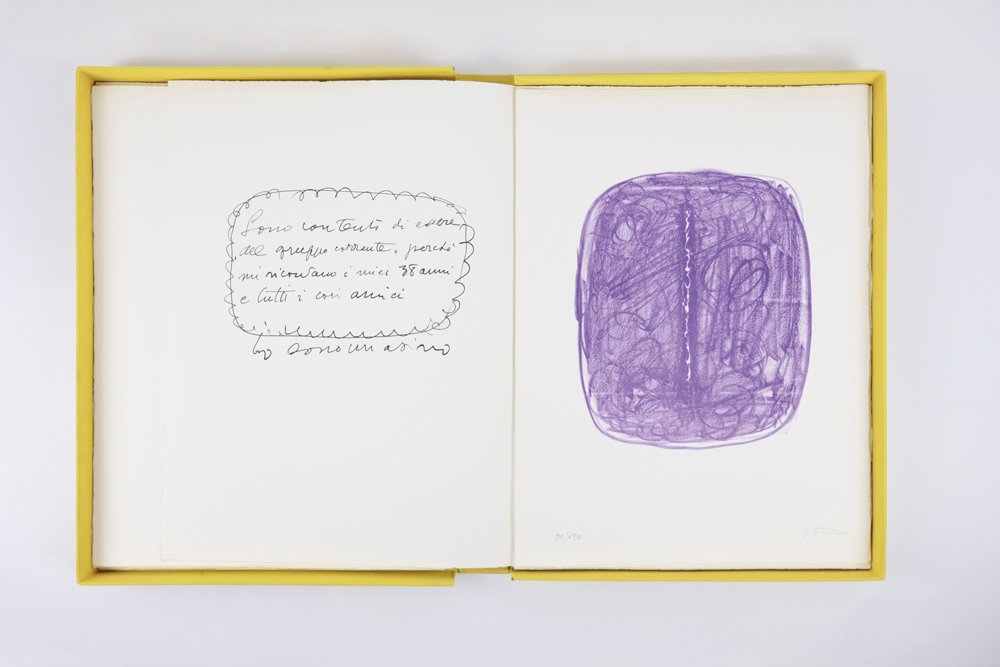 Sono contenti di essere
del gruppo corrente, perché
mi ricordano i miei 38 anni
e tutti i cari amici
Io sono un asino
50/150